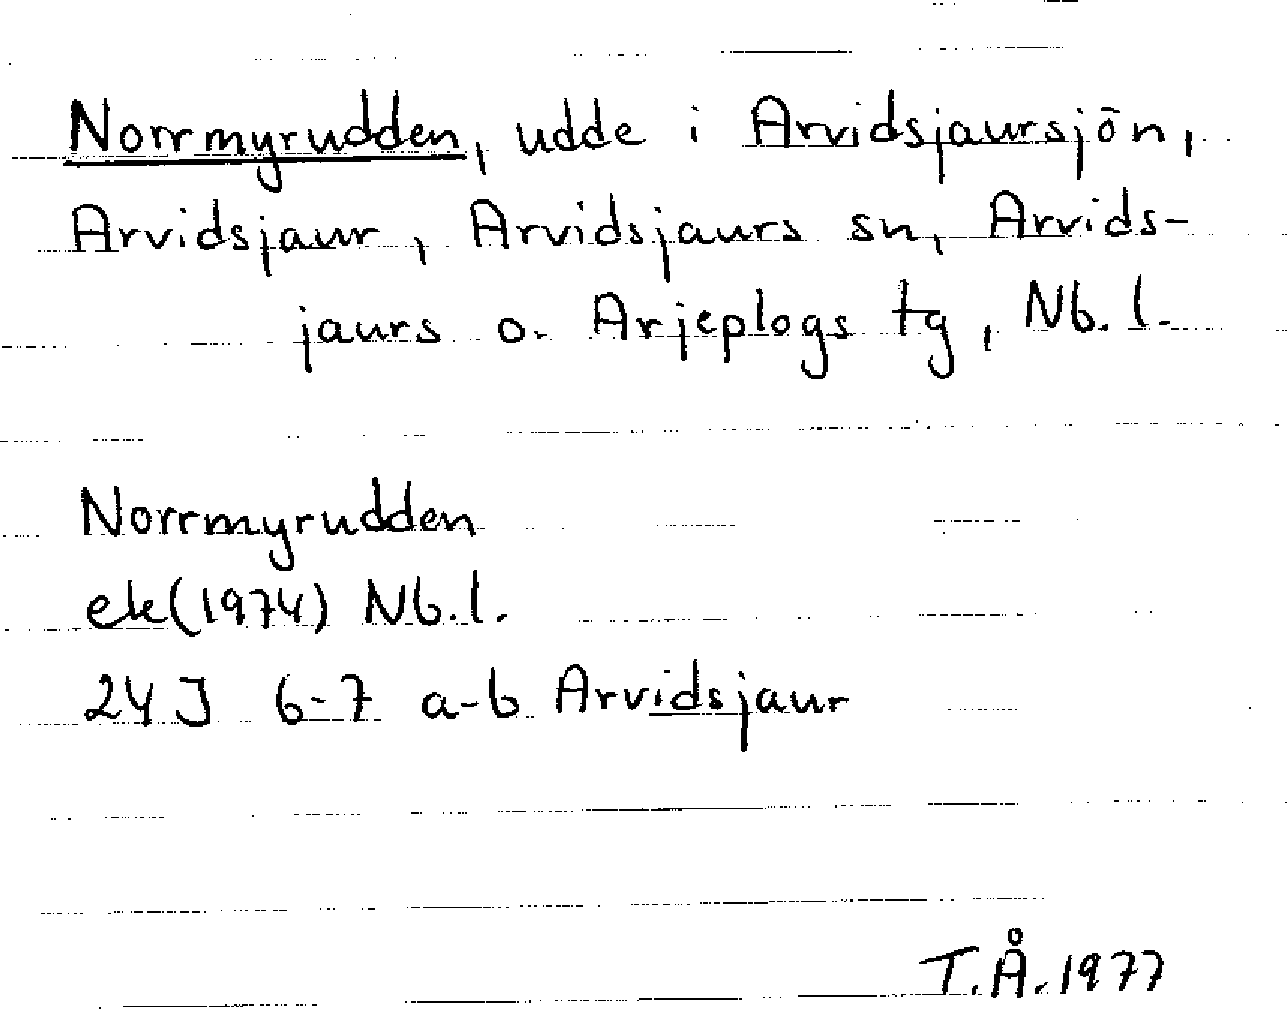 Norrmyrudden, udde i Arvidsjaursjön,
Arvidsjaur, Arvidsjaurs sn, Arvids-
jaurs o. Arjeplogs tg, Nb. l.
Norrmyrudden
ek(1974) Nb.l.
24J 6-7 a-b Arvidsjaur
T.Å. 1977